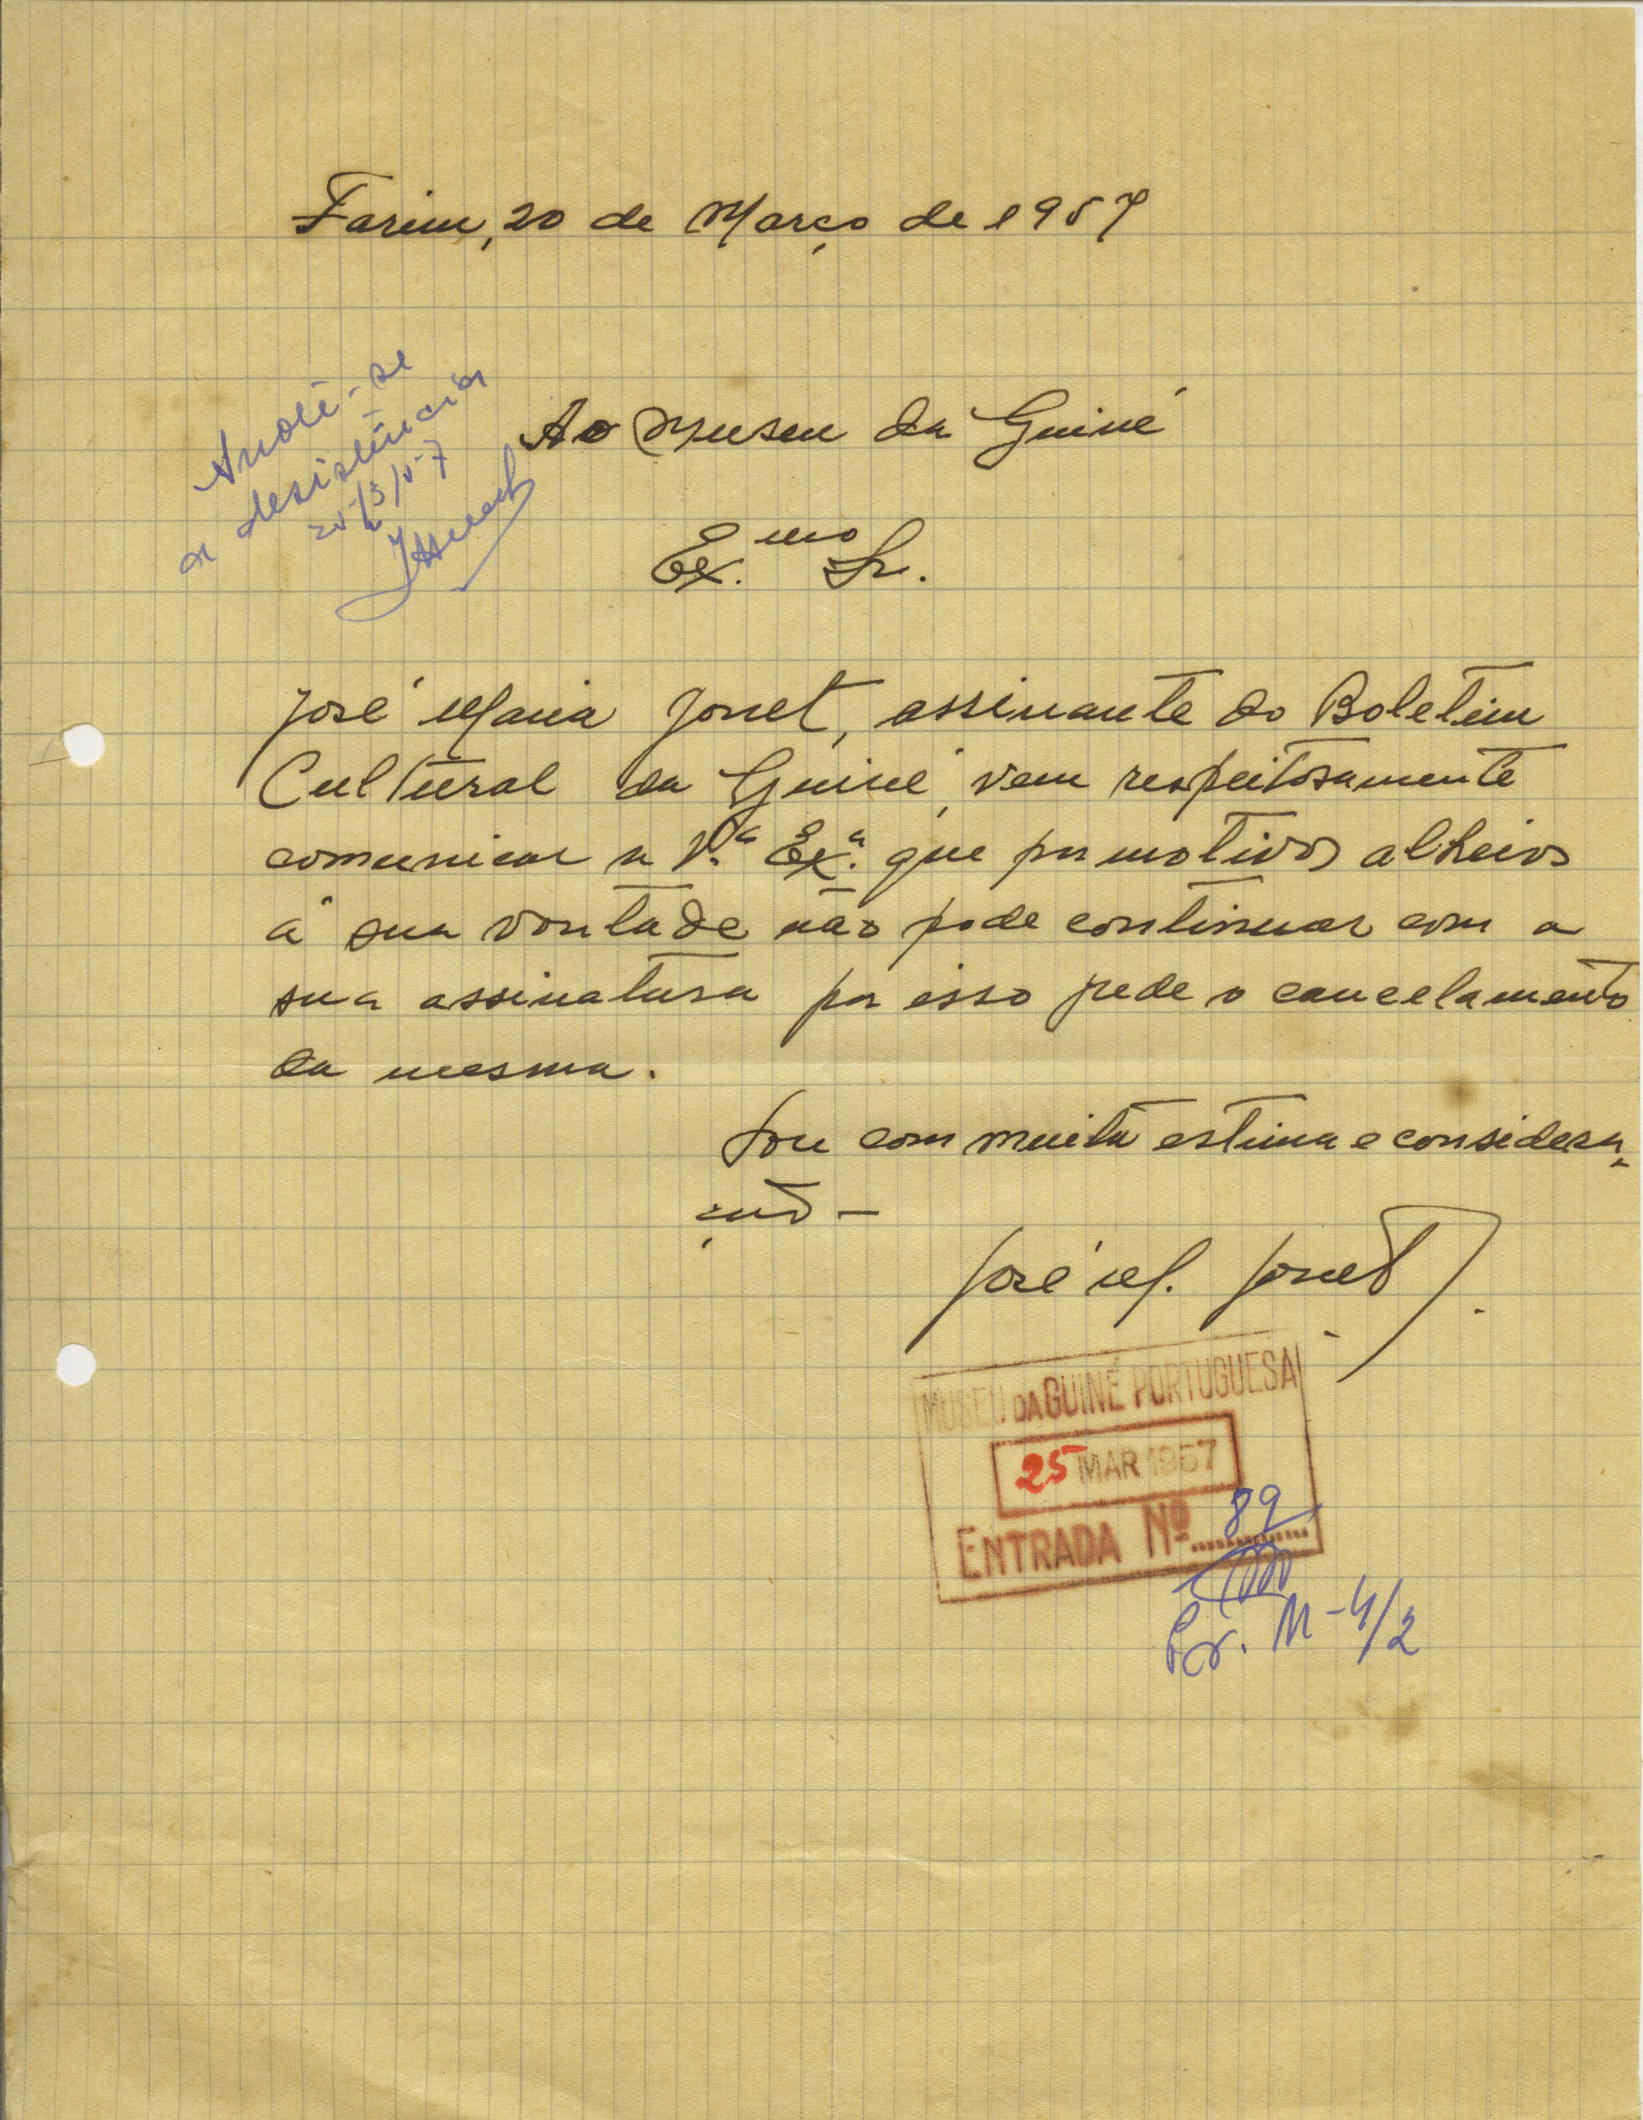 Farim, 20 de Março de 1957
Anote-se
a desistência
25/3/57
Ao Museu da Guiné
Ex.mo Sr.
José Maria Jonet, assinante do Boletim
Cultural da Guiné, vem respeitosamente
comunicar a V.ª Ex.ª que por motivos alheios
á sua vontade não pode continuar com a
sua assinatura por isso pede o cancelamento
da mesma.
Sou com muita estima e considera-
ção -
José M. Jonet
MUSEU DA GUINÉ PORTUGUESA
25 MAR 1957
ENTRADA Nº 89
Pr. M-4/2